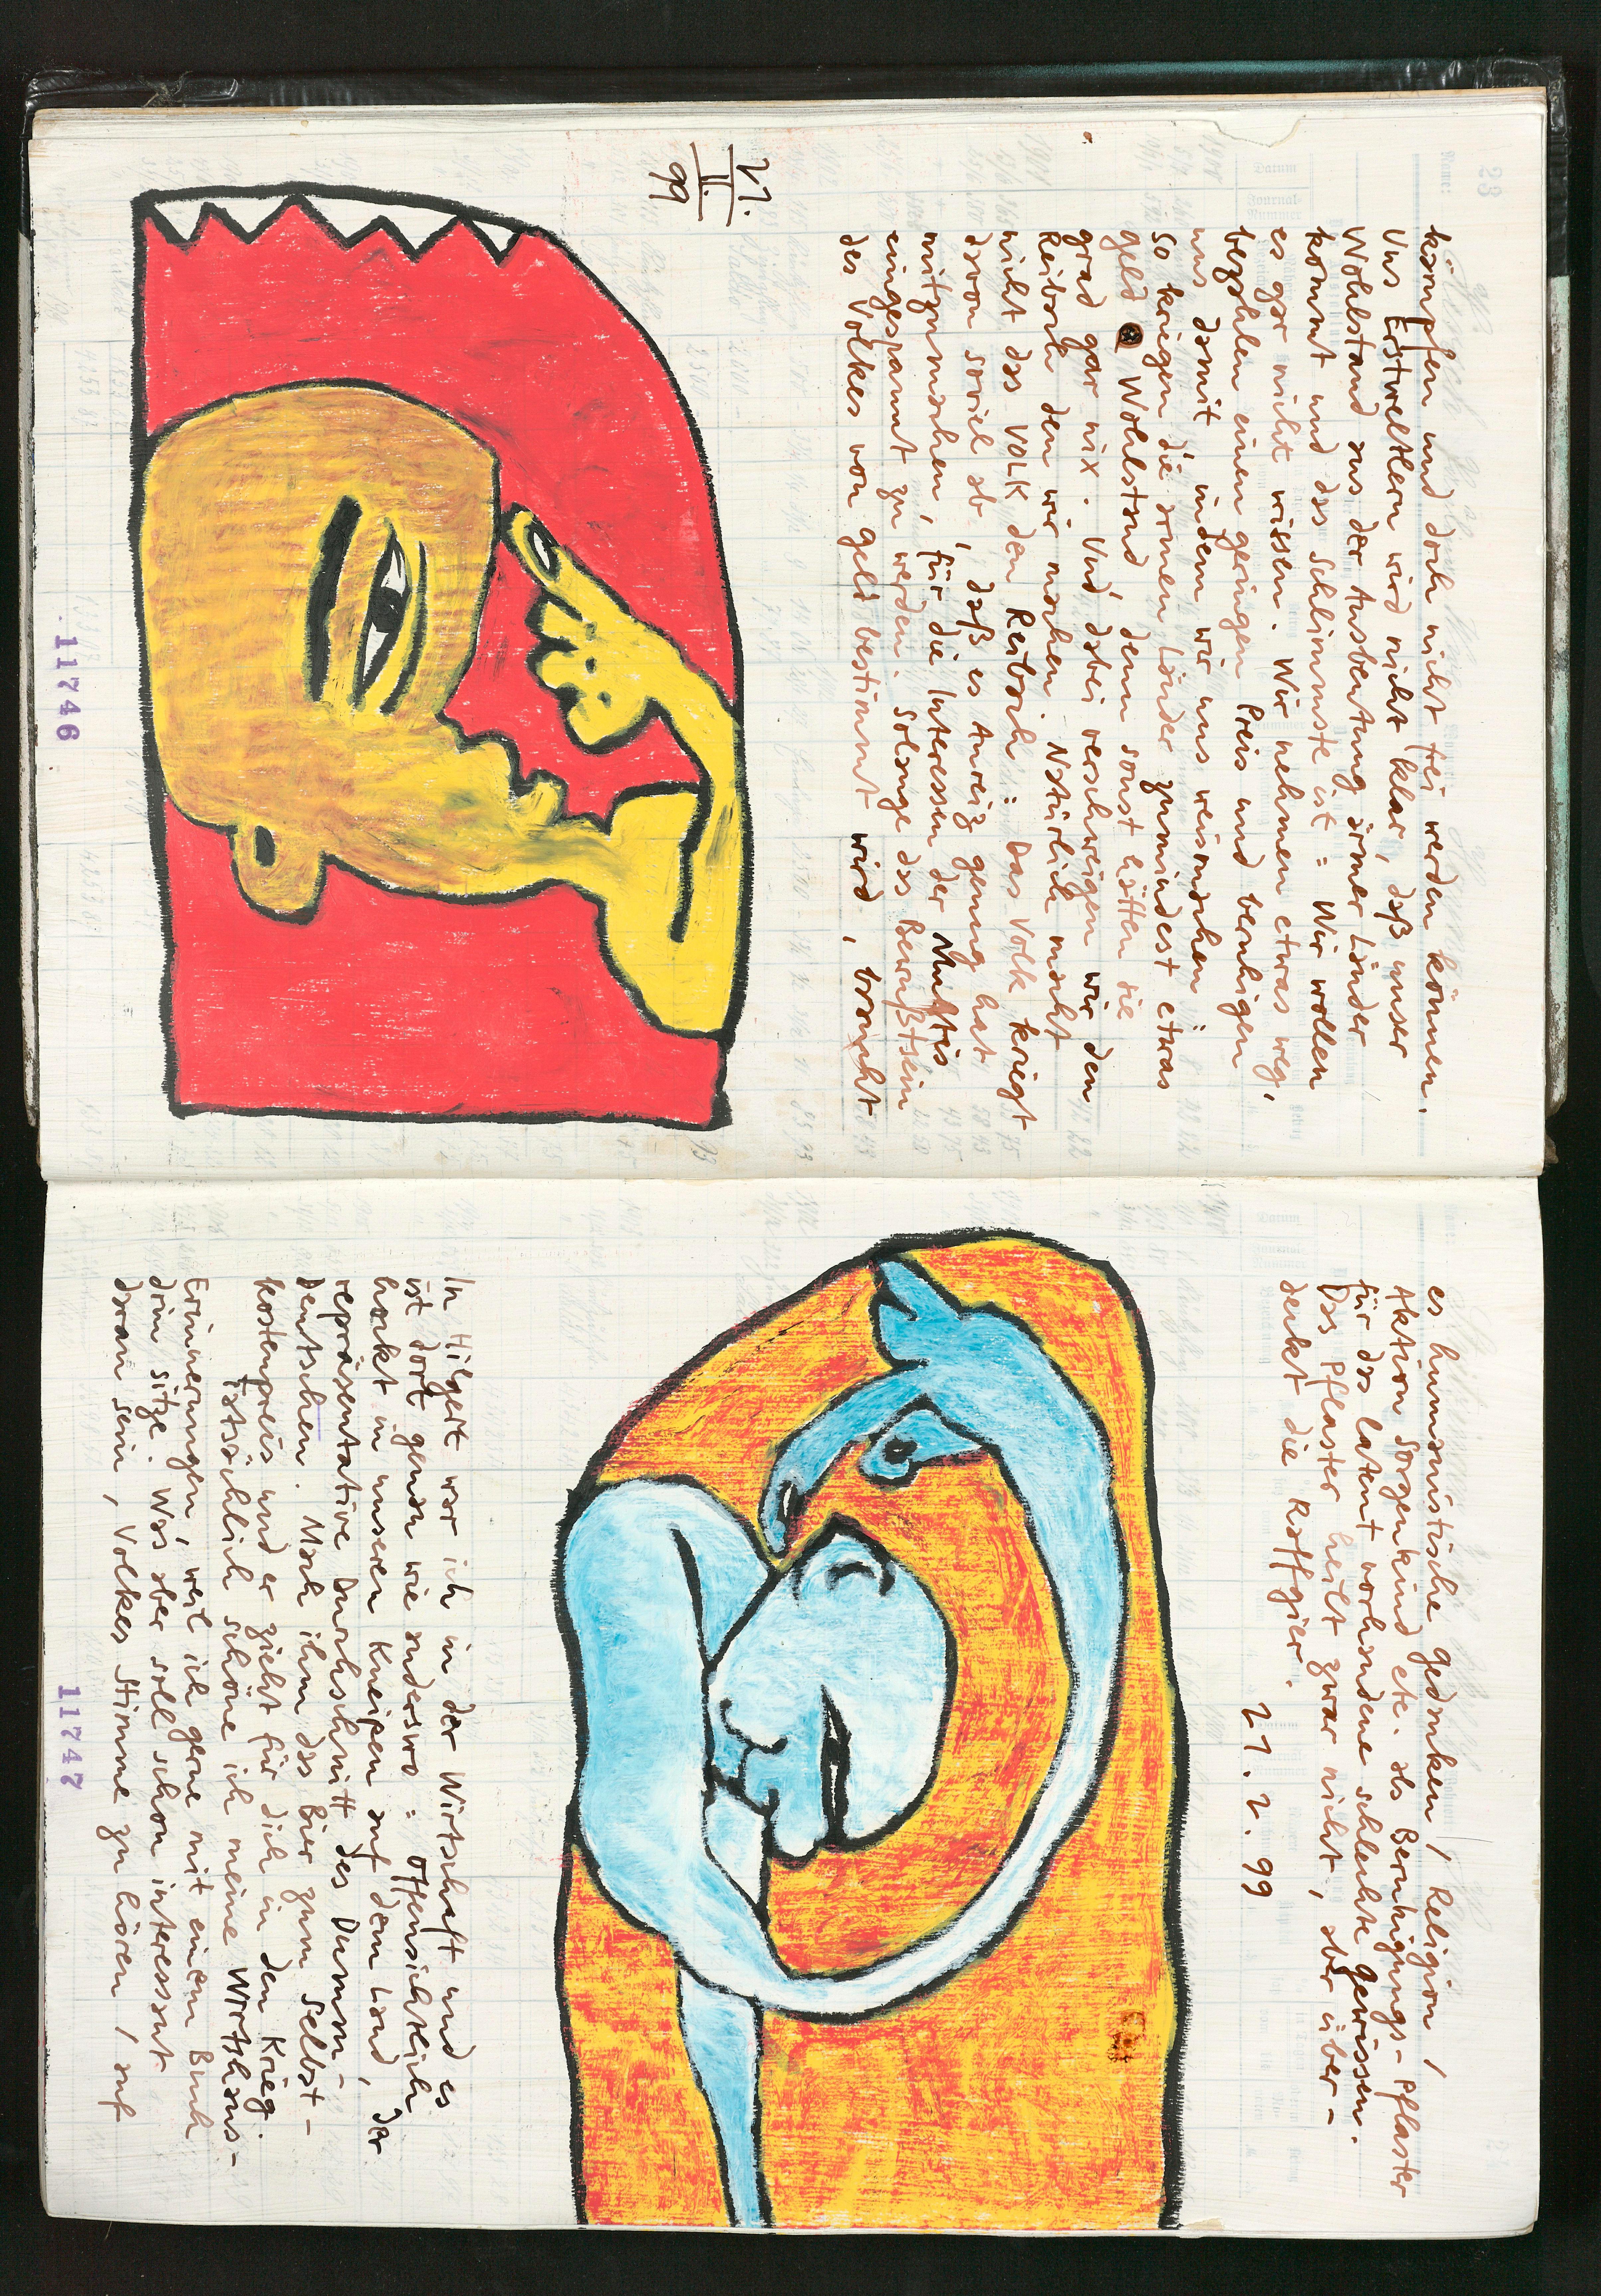 kämpfen und doch nicht frei werden können.
Uns Erstweltlern wird nicht klar, daß unser
Wohlstand aus der Ausbeutung armer Länder
kommt und das schlimmste ist = Wir wollen
es gar nicht wissen. Wir nehmen etwas weg,
bezahlen einen geringen Preis und beruhigen
uns damit, indem wir uns weismachen,
so kriegen die armen Länder zumindest etwas
geld & Wohlstand, denn sonst hätten sie
grad gar nix. Und dabei verschweigen wir den
Reibach den wir machen. Natürlich macht
nicht das VOLK den Reibach: Das Volk kriegt
davon soviel ab, daß es Anreiz genug hat
mitzumachen, für die Interessen der Muftis
eingespannt zu werden. Solange das Bewußtsein
des Volkes von geld bestimmt wird, braucht
21.
II.
99
11746
es humanistische gedanken / Religion /
Aktion Sorgenkind etc. als Beruhigungs-Pflaster
für das latent vorhandene schlechte gewissen.
Das Pflaster heilt zwar nicht, aber über-
deckt die Raffgier.
21.2.99
In Hilgert war ich in der Wirtschaft und es
ist dort genau wie anderswo = Offensichtlich
hockt in unseren Kneipen auf dem Land, der
repräsentative Durchschnitt des Dumm-
Deutschen. Mach ihm das Bier zum Selbst-
kostenpreis und er zieht für dich in den Krieg.
Tatsächlich schöne ich meine Wirtshaus-
Erinnerungen, weil ich gerne mit einem Buch
drin sitze. Was aber soll schon interessant
daran sein, Volkes Stimme zu hören / auf
11747